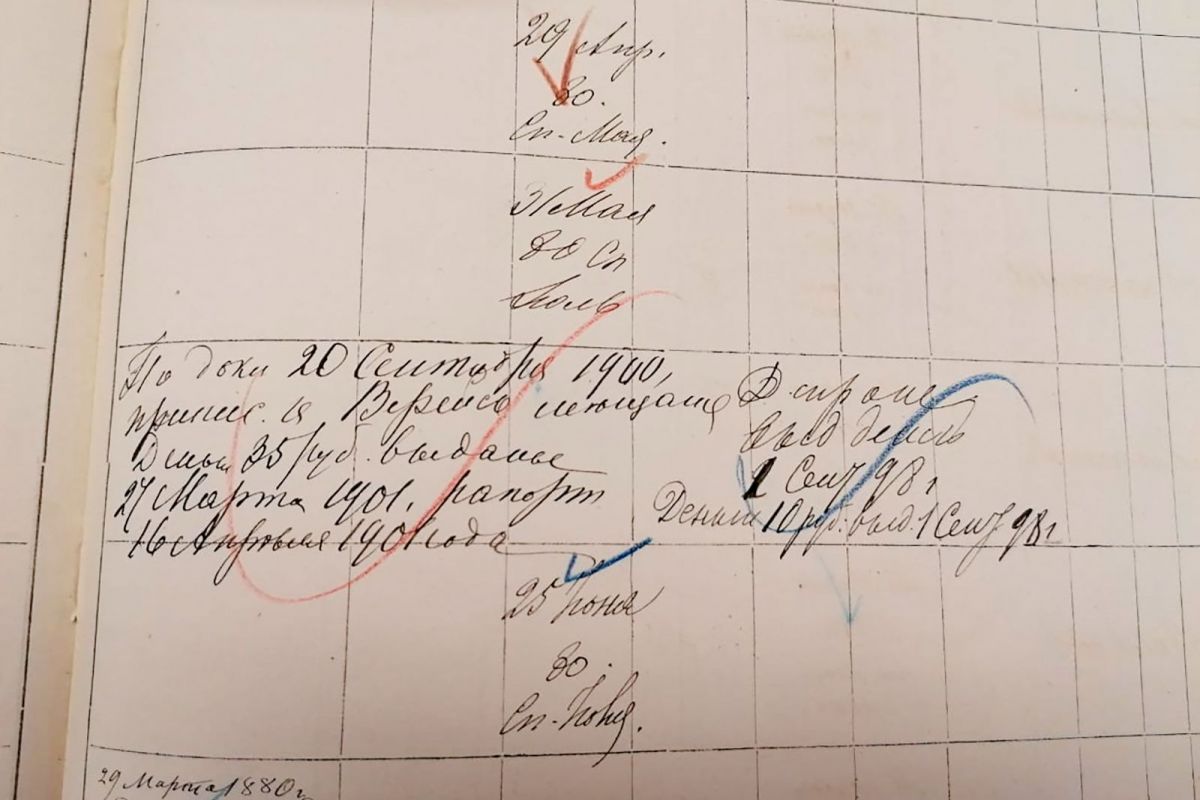 29 Апр.
80.
Сп. Мая.
31 Мая
80 Сп
Июль
По докл 20 Сентября 1900,
припис. к мещане
Деньги 35 руб. выданы
27 Марта 1901, рапорт
16 Апреля 1901 года
выд
1 Сент 98 г
Деньги 10 руб. выд. 1 Сент 98 г
25 Июня
80.
Сп.
29 Марта 1880 г